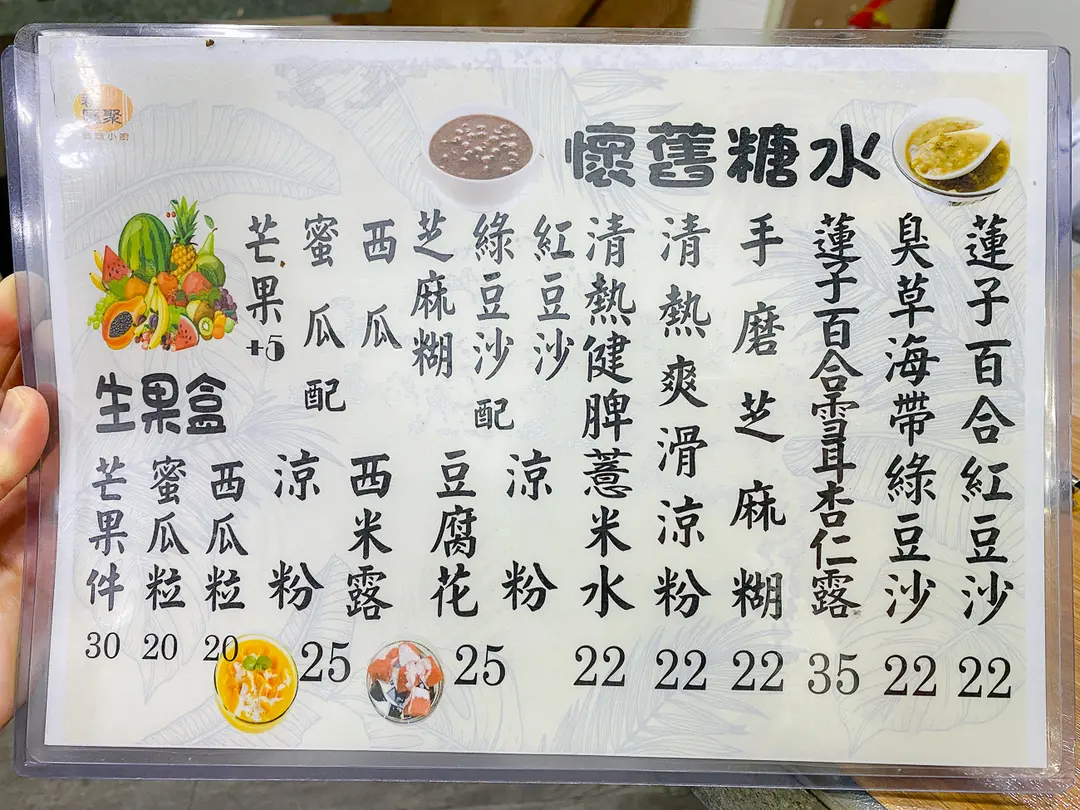 懷舊糖水
蓮子百合紅豆沙 22
臭草海帶綠豆沙 22
蓮子百合雪耳杏仁露 35
手磨芝麻糊 22
清熱爽滑涼粉 22
清熱健脾薏米水 22
紅豆沙
綠豆沙
芝麻糊
配
涼粉
豆腐花
25
西瓜
蜜瓜
芒果+5
配
西米露
涼粉
25
生果盒
西瓜粒 20
蜜瓜粒 20
芒果件 30